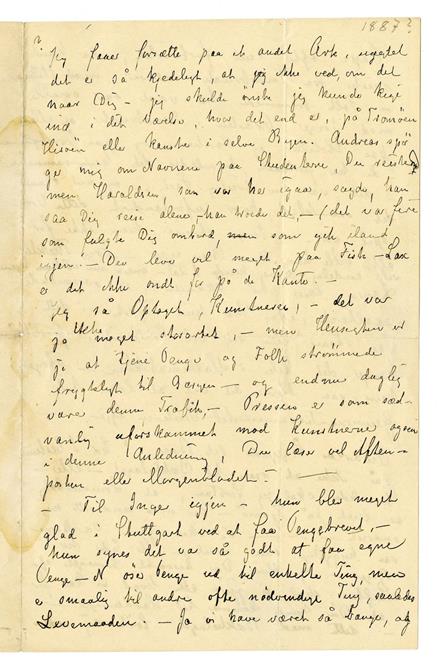 1887?
Jeg faaer fortsætte paa et andet Ark, uagtet
det er så kjedeligt, at jeg ikke ved, om det
naar Dig – jeg skulde ønske jeg kunde kige
ind i det Værelse, hvor det end er, på Tromøen
Hisøen eller kanske i selve Byen. Andreas spør
ger mig om Navnene paa Studenterne, Du reiste
men Haraldsen, som var her igaar, sagde, han
saa Dig reise alene – han troede det, – (det var fire
som fulgte Dig ombord, men som gik iland
igjen. – Du lever vel meget paa Fisk – Lax
er det ikke ondt for på de Kanter. –
Jeg så Optoget, Kunstneren, – det var
jo ikke noget storartet, – men Hensigten er
jo at tjene Penge og Folk strømmede
frygteligt til Bazaren – og endnu daglig
være denne Trafik, – Pressen er som sæd-
vanlig uforskammet mod Kunstnerne ogsaa
i denne Anledning, Du læser vel Aften-
posten eller Morgenbladet. –
– Til Inger igjen – hun blev meget
glad i Stuttgart ved at faa Pengebrevet, –
hun synes det var så godt at faa egne
Penge – N øser Penge ud til enkelte Ting, men
er smaalig til andre ofte nødvendige Ting, saaledes
Levemaaden. – Ja vi have været så bange, at